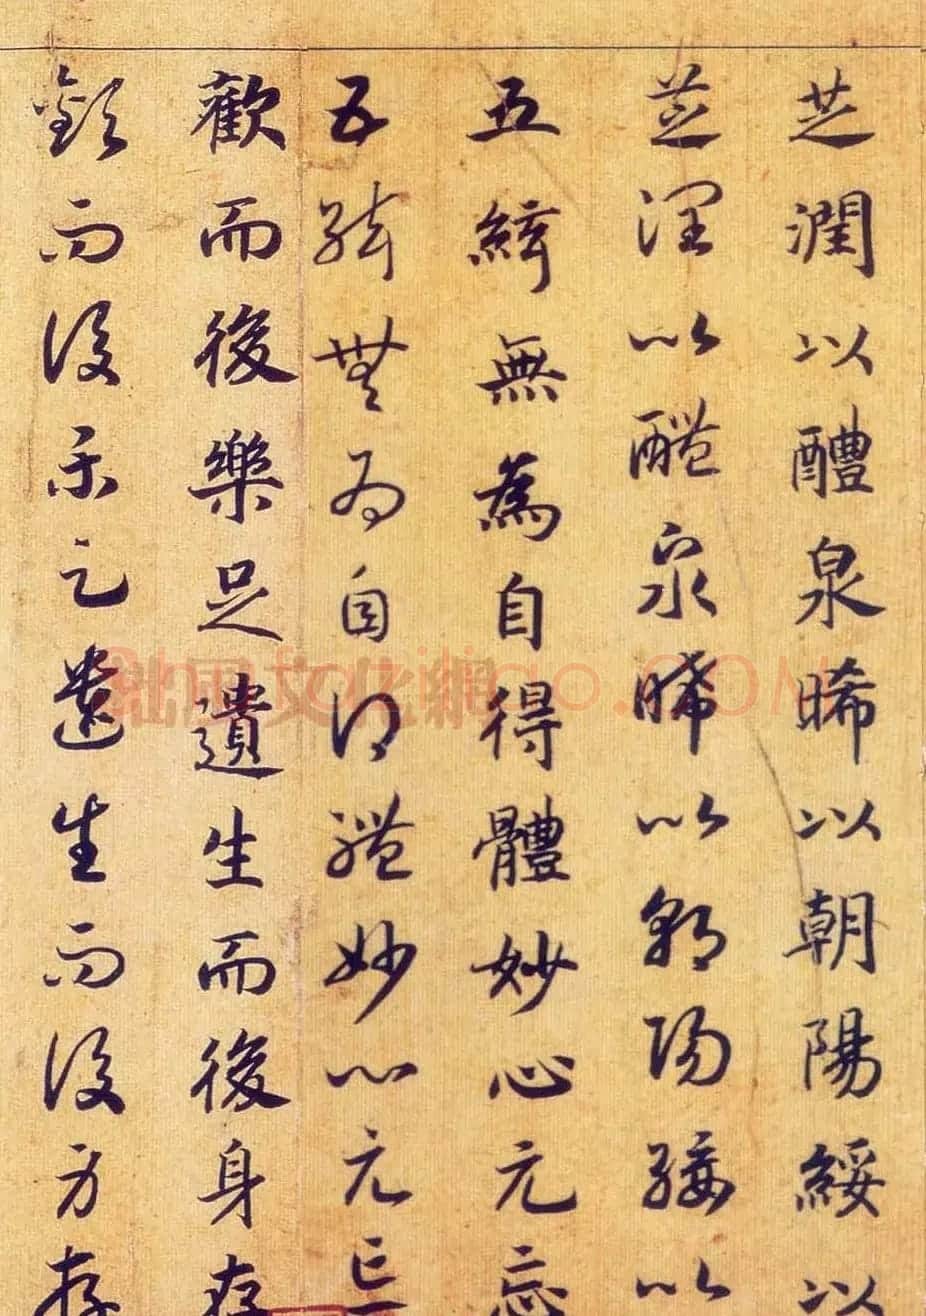 芝潤以醴泉晞以朝陽綏以
芝潤以醴泉晞以朝陽綏以
五絃無為自得體妙心元忘
五絃無為自得體妙心元忘
歡而後樂足遺生而後身存
歡而後樂足遺生而後身存